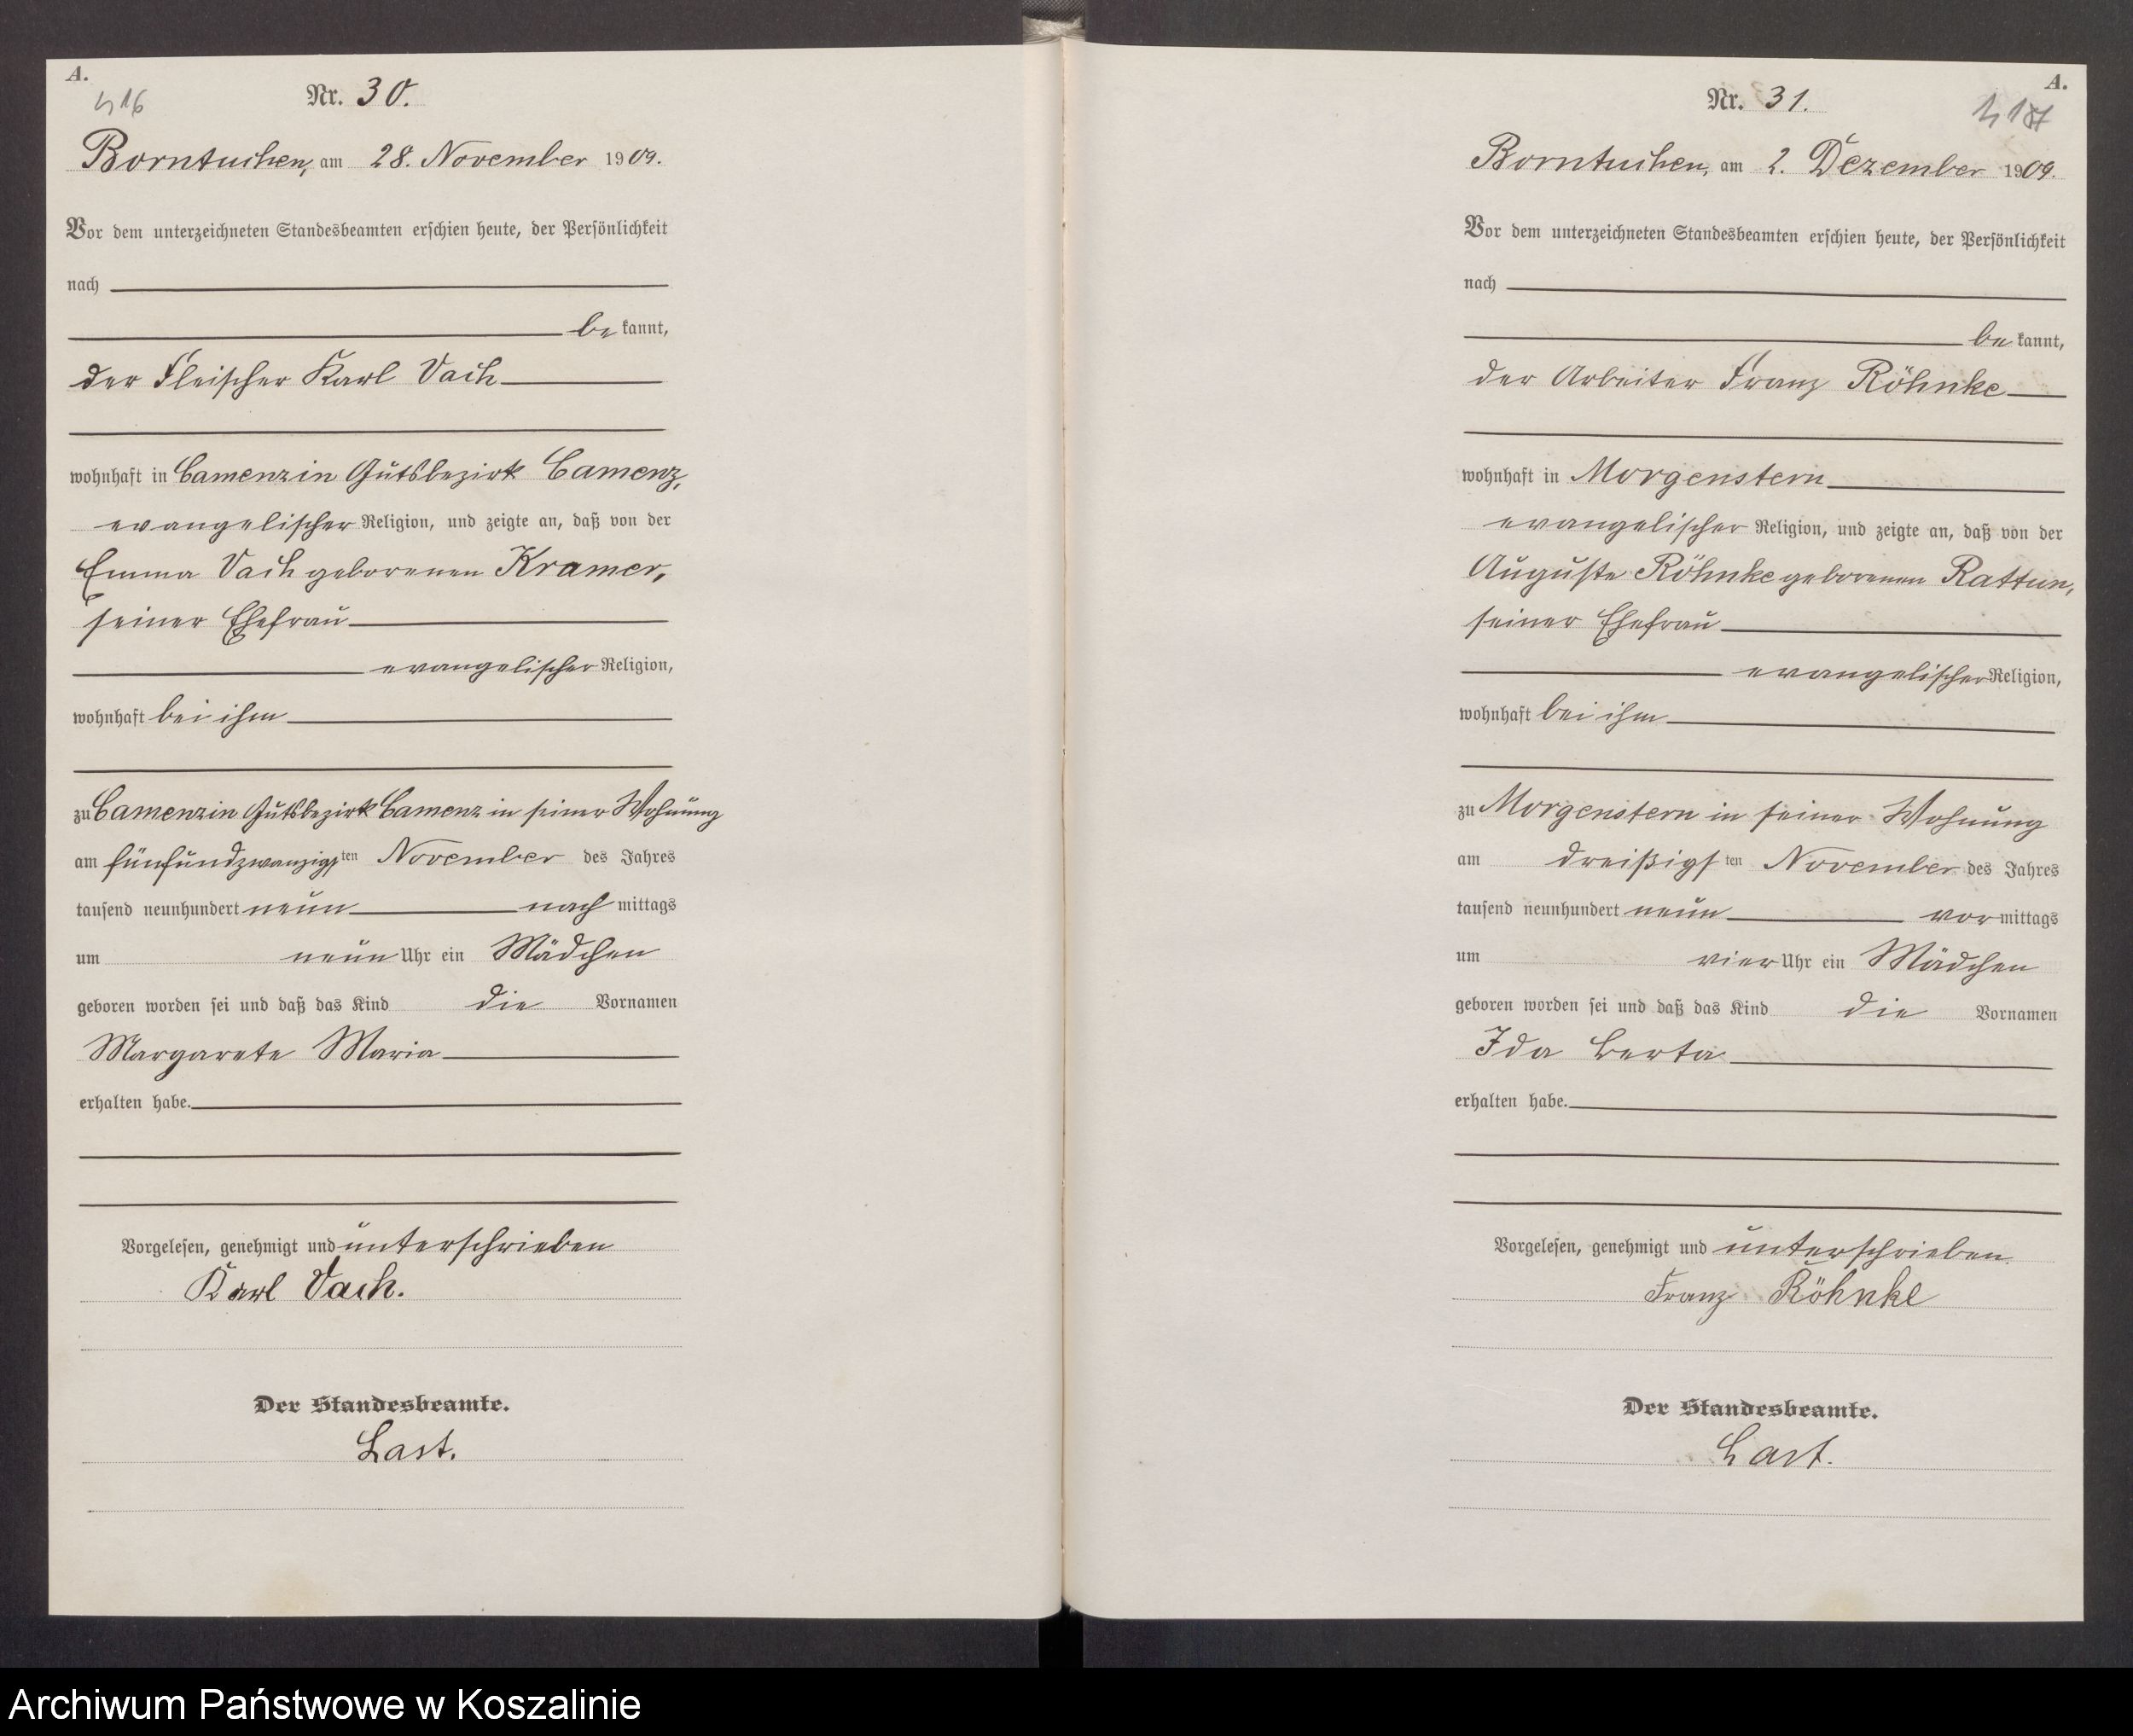 A.
416
Nr. 30.
Borntuchen, am 28. November 1909.
Vor dem unterzeichneten Standesbeamten erschien heute, der Persönlichkeit
nach
be kannt,
der Fleischer Karl Vach
wohnhaft in Camenz in Gutsbezirk Camenz,
evangelischer Religion, und zeigte an, daß von der
Emma Vach geborenen Kramer,
seiner Ehefrau
evangelischer Religion,
wohnhaft bei ihm
zu Camenz in Gutsbezirk Camenz in seiner Wohnung
am fünfundzwanzigsten November des Jahres
tausend neunhundert neun nach mittags
um neun Uhr ein Mädchen
geboren worden sei und daß das Kind die Vornamen
Margarete Maria
erhalten habe.
Vorgelesen, genehmigt und unterschrieben
Karl Vach.
Der Standesbeamte.
Last.
A.
Nr. 31.
Borntuchen, am 2. Dezember 1909.
Vor dem unterzeichneten Standesbeamten erschien heute, der Persönlichkeit
nach
be kannt,
der Arbeiter Franz Röhnke
wohnhaft in Morgenstern
evangelischer Religion, und zeigte an, daß von der
Auguste Röhnke geborenen Rattun,
seiner Ehefrau
evangelischer Religion,
wohnhaft bei ihm
zu Morgenstern in seiner Wohnung
am dreißigsten November des Jahres
tausend neunhundert neun vor mittags
um vier Uhr ein Mädchen
geboren worden sei und daß das Kind die Vornamen
Ida Berta
erhalten habe.
Vorgelesen, genehmigt und unterschrieben
Franz Röhnke
Der Standesbeamte.
Last.
Archiwum Państwowe w Koszalinie